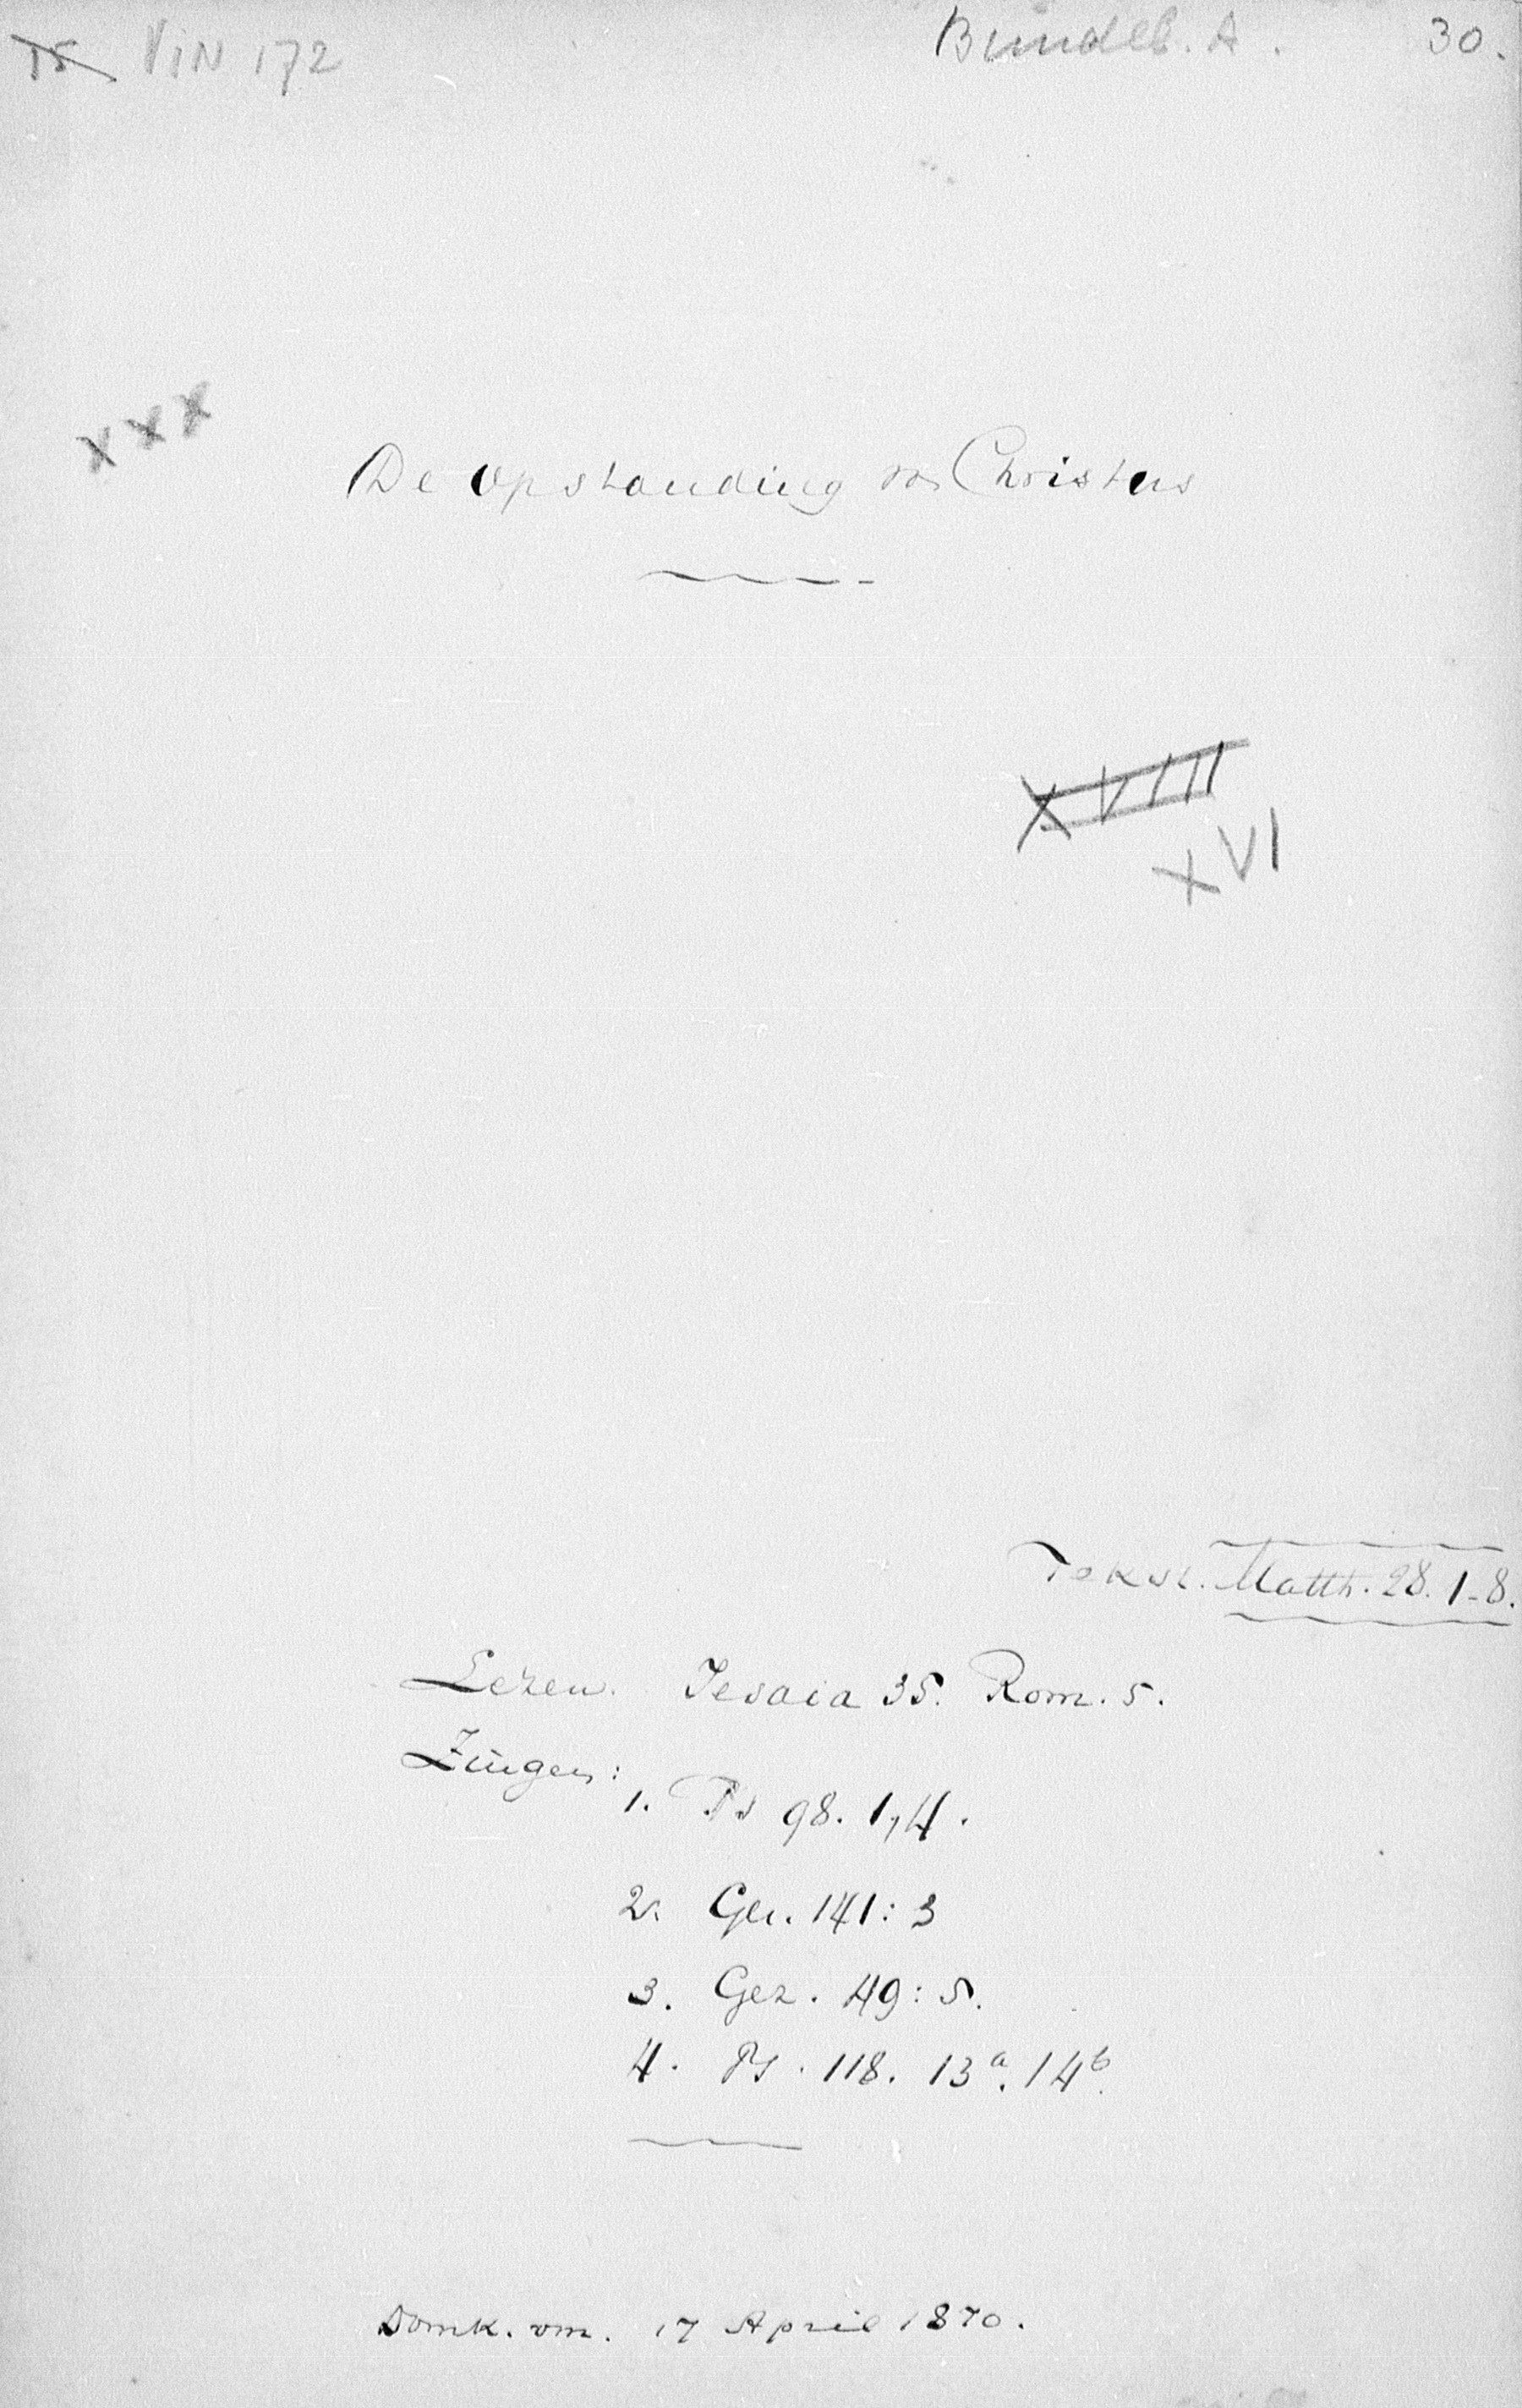 VIN 172 Bundel. A. 30.
XXX
De Opstanding van Christus
XVIII
XVI
Tekst. Matth. 28. 1-8.
Lezen. Jesaia 35. Rom. 5.
Zingen:
1. Ps 98. 1,4.
2. Gez. 141:3
3. Gez. 49:5.
4. Ps. 118. 13a. 14b.
Domk. vm. 17 April 1870.